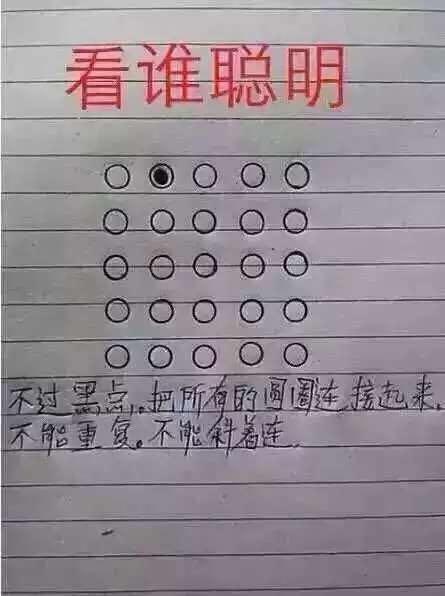 看谁聪明
不过黑点。把所有的圆圈连接起来.
不能重复。不能斜着连.